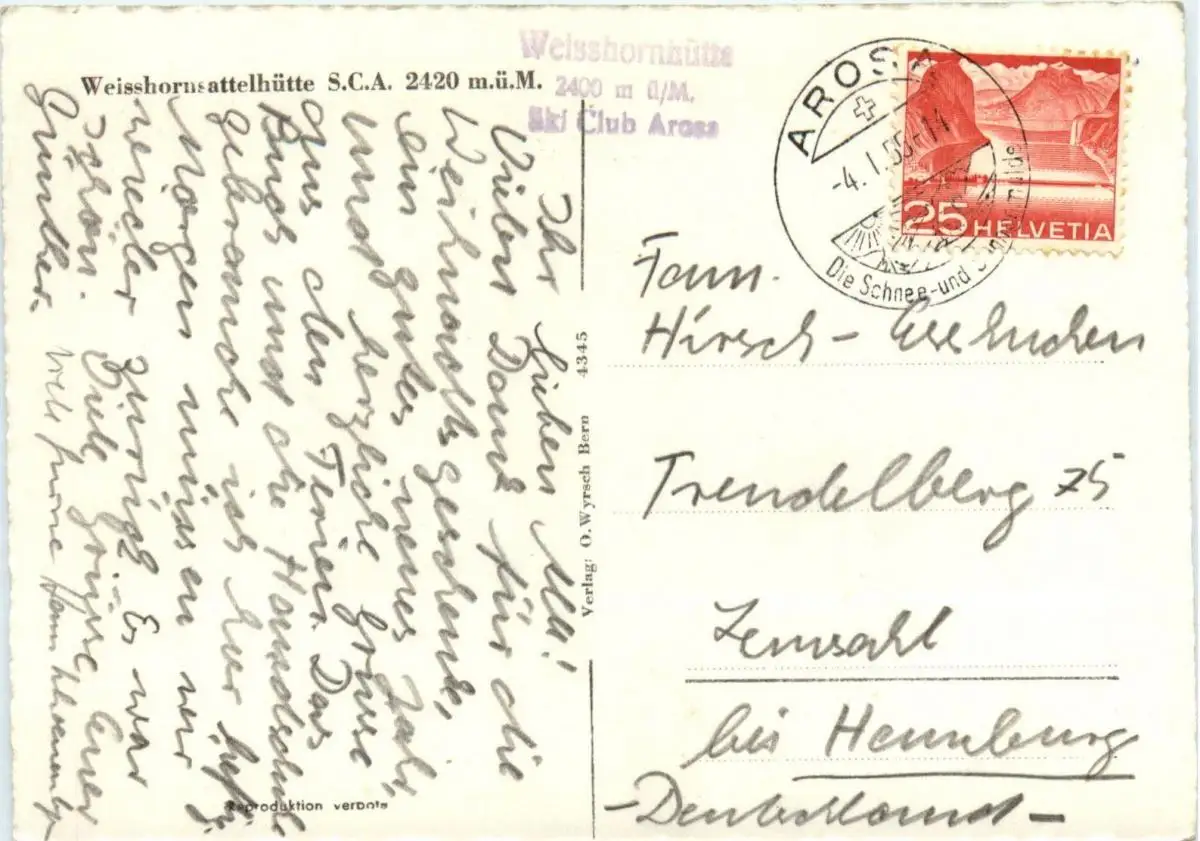 Weisshornsattelhütte S.C.A. 2420 m.ü.M.
Weisshornhütte
2400 m ü/M.
Ski Club Arosa
AROSA
-4. I. 55-14
Die Schnee- und
25 HELVETIA
Ihr lieben All!
Vielen Dank für die
Weihnachtsgeschenke,
ein gutes neues Jahr,
und herzliche Grüsse
aus den Ferien. Das
Buch und die Handschuhe
gebrauche ich hier
Morgen müssen wir
wieder zurück. Es war
schön. Viele Grüsse Euer
Günther.
Verlag: O. Wyrsch Bern 4345
Reproduktion verboten
Fam.
Hirsch-
Trendelberg 75
bei Hamburg
-Deutschland-